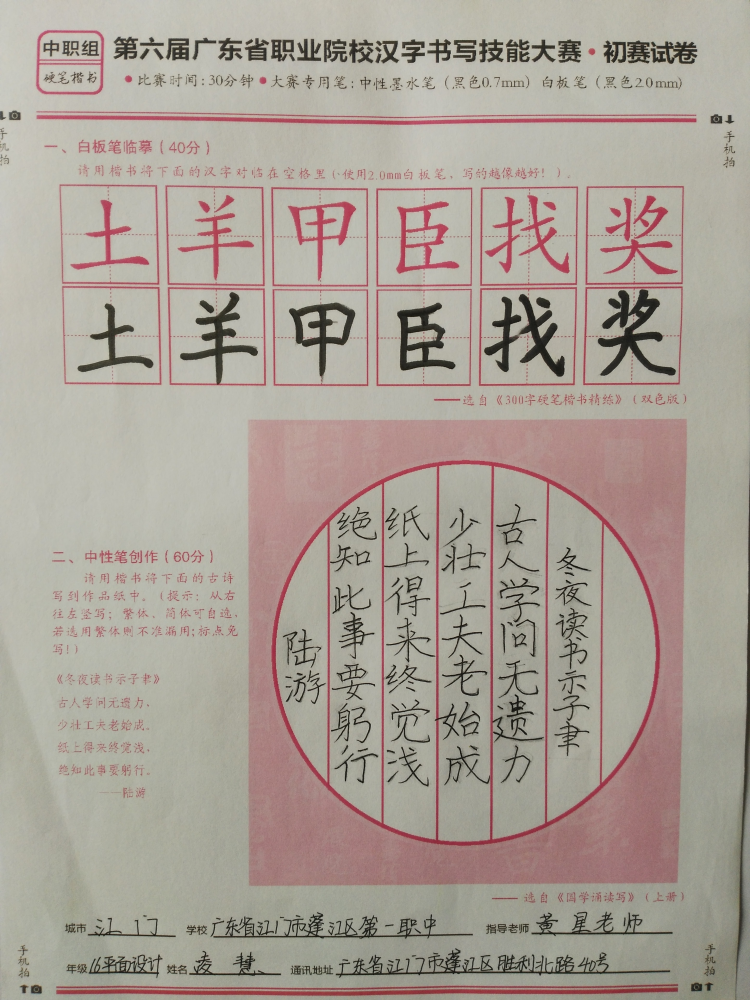 中职组
硬笔楷书
第六届广东省职业院校汉字书写技能大赛·初赛试卷
●比赛时间：30分钟●大赛专用笔：中性墨水笔（黑色0.7mm）白板笔（黑色2.0mm）
手机拍
手机拍
一、白板笔临摹（40分）
请用楷书将下面的汉字对临在空格里（使用2.0mm白板笔，写的越像越好！）。
土羊甲臣找奖
土羊甲臣找奖
——选自《300字硬笔楷书精练》（双色版）
二、中性笔创作（60分）
请用楷书将下面的古诗
写到作品纸中。（提示：从右
往左竖写；繁体、简体可自选，
若选用繁体则不准漏用;标点免
写!）
《冬夜读书示子聿》
古人学问无遗力，
少壮工夫老始成。
纸上得来终觉浅，
绝知此事要躬行。
——陆游
冬夜读书示子聿
古人学问无遗力
少壮工夫老始成
纸上得来终觉浅
绝知此事要躬行
陆游
——选自《国学诵读写》（上册）
城市 江门 学校 广东省江门市蓬江区第一职中 指导老师 黄星老师
年级 16平面设计 姓名 凌慧 通讯地址 广东省江门市蓬江区胜利北路40号
手机拍
手机拍